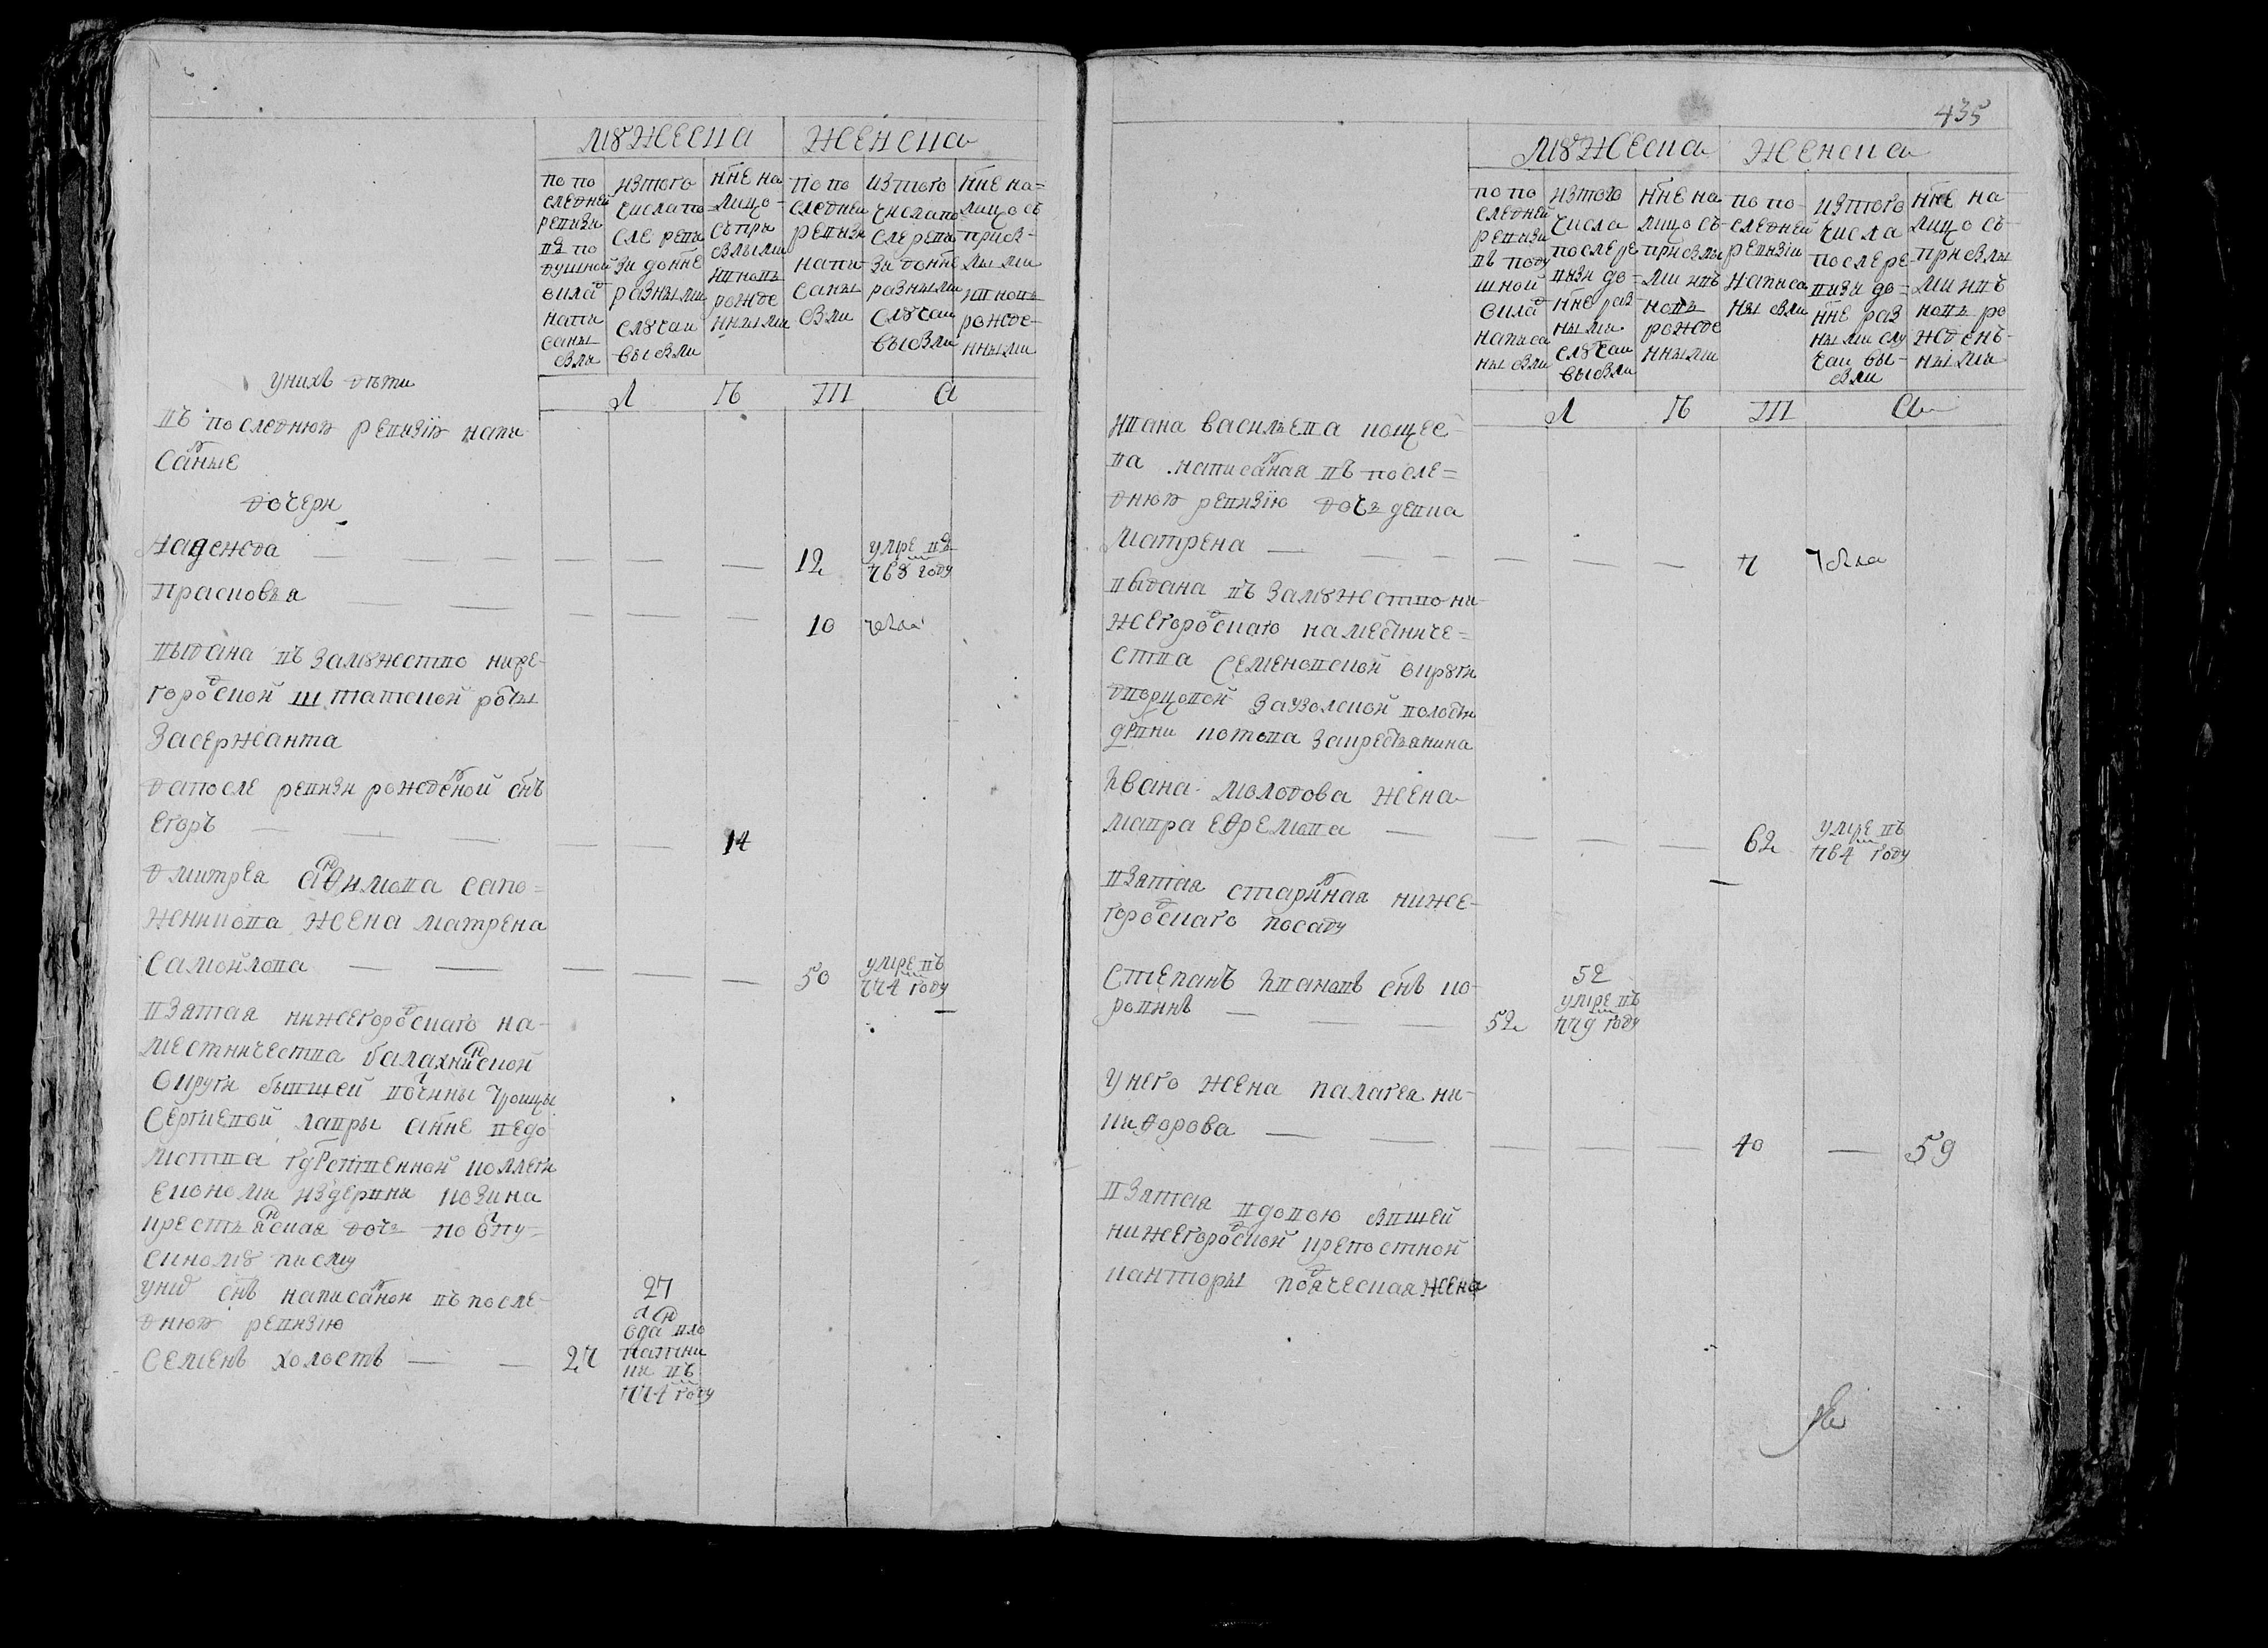 мужеска женска
по по
следней
ревизи
въ по
душной
окла
напи
саны
были
изтого
числа по
сле реви
зи до нне
разными
случаи
выбыли
нне на
лицо
съ при
былыми
и вновь
рожде
нными
по по
следней
ревизи
напи
саны
были
изтого
числапо
сле реви
зи донне
разными
случаи
выбыли
нне на=
лицо съ
прибы-
лыми
и вновь
рожде-
нными
л в т а
у нихъ дети
въ последнюю ревизию напи
саные
дочери
надежда — 12 умре въ
768 году
прасковья — 10 
выдана въ замужество ниже-
городской штатской роты
за сержанта
да после ревизи рожденой снъ
егоръ — 14
дмитрея анфимова сапо=
жникова жена матрена
самойлова — 50 умре въ
774 году
взятая нижегородскаго на-
местничества балахнинской
округи бывшей вочины троицы
сергиевой лавры а нне ведо
мства гдрственной коллеги
економи из деревни
крестьянская дочь по отпу=
скному писму
у ню снъ написаной въ после-
днюю ревизию 27
семенъ холостъ — 27 отданъ
в
въ
774 году
435
мужеска женска
по по
следней
ревизи
въ поду
шной
окла
написа
ны были
изтого
числа
после ре
визи до=
нне раз-
ными
случаи
выбыли
нне на
лицо съ
прибылы
ми и въ
новь
рожде
нными
по по-
следней
ревизии
написа
ны были
изтого
числа
после ре-
визи до=
нне раз
ными слу
чаи вы-
были
нне на
лицо съ-
прибылы
ми и въ
новь ро
жденъ-
ными
л в т а
ивана васильева кощее-
ва написаная въ после=
днюю ревизию дочь девка
матрена — 7 
выдана въ замужество ни-
жегородскаго наместниче=
ства семеновской округи
дворцовой заузолской волости
дрвни котова за крестьянина
ивана молодова жена
мавра ефремова — 62 умре въ
764 году
взятая старинная ниже-
городскаго посаду
степанъ ивановъ снъ ко-
ровинъ — 52 52
умре въ
779 году
у него жена палагея ни-
кифорова — 40 — 59
взятая вдовою бывшей
нижегородской крепостной
канторы подяческая жена